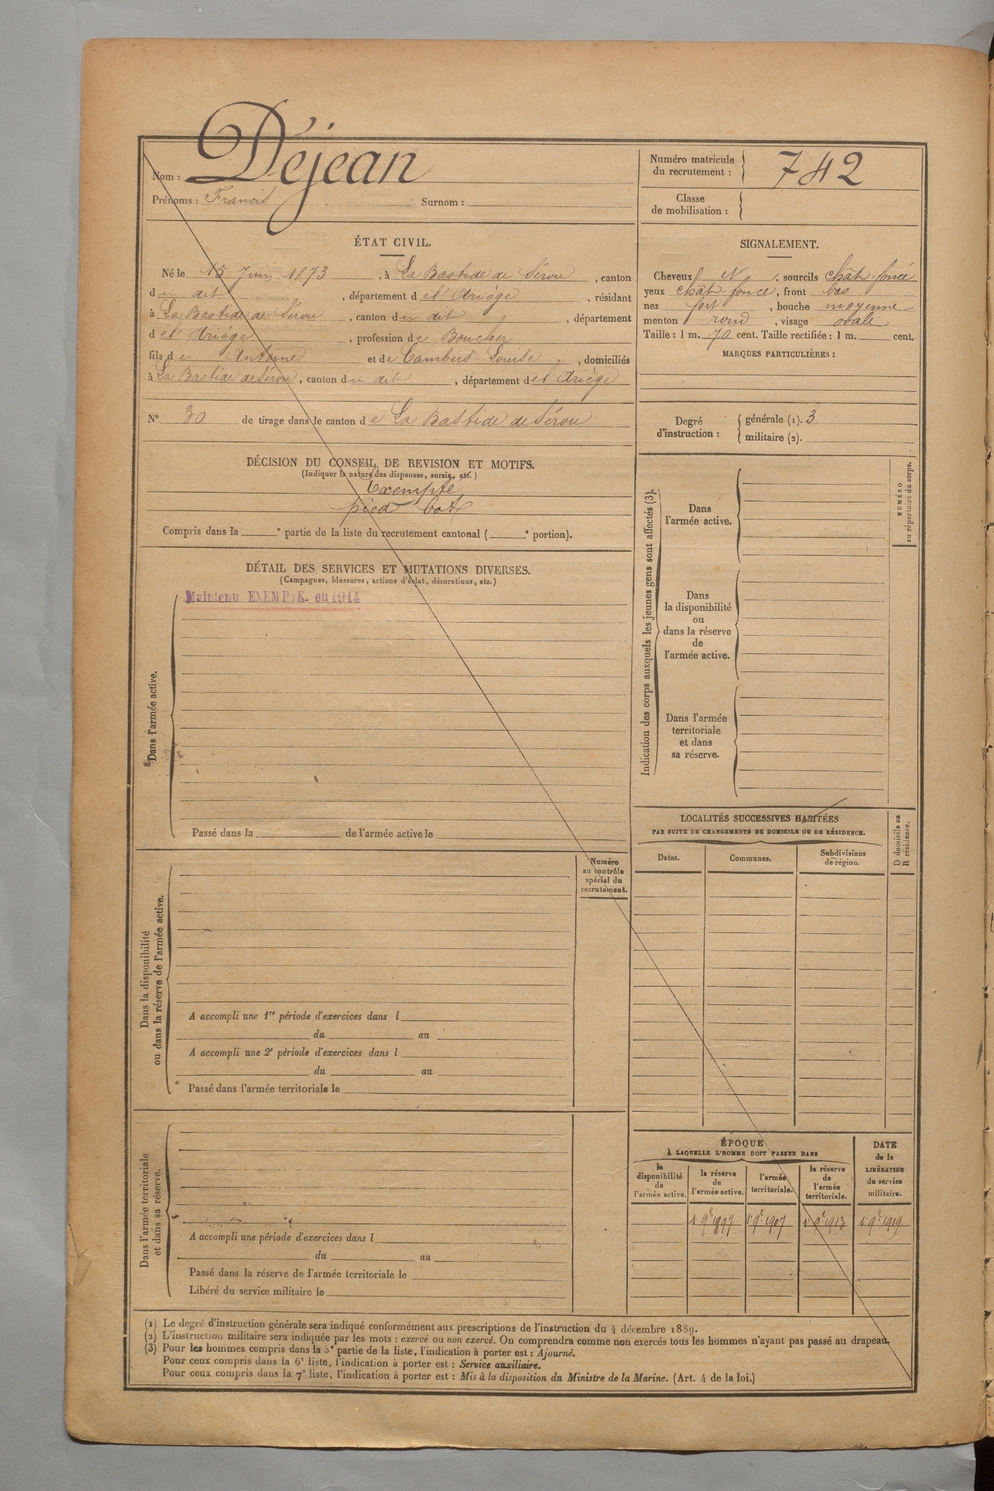 Nom : Déjean
Prénoms : Francis Surnom :
Numéro matricule du recrutement : 742
Classe de mobilisation :
ÉTAT CIVIL.
Né le 15 Juin 1873, à La Bastide de Sérou, canton
du dit, département de l'Ariège, résidant
à La Bastide de Sérou, canton du dit, département
de l'Ariège, profession de Boucher
fils de Antoine et de Cambus Louise, domiciliés
à La Bastide de Sérou, canton du dit, département de l'Ariège
N° 30 de tirage dans le canton de La Bastide de Sérou
SIGNALEMENT.
Cheveux N, sourcils chât-foncé
yeux chât-foncé, front bas
nez fort, bouche moyenne
menton rond, visage ovale
Taille : 1 m. 70 cent. Taille rectifiée : 1 m. cent.
MARQUES PARTICULIÈRES :
Degré d'instruction : générale (1). 3
militaire (2).
DÉCISION DU CONSEIL DE REVISION ET MOTIFS.
(Indiquer la nature des dispenses, sursis, etc.)
Exempté
pied bot
Compris dans la e partie de la liste du recrutement cantonal ( e portion).
DÉTAIL DES SERVICES ET MUTATIONS DIVERSES.
(Campagnes, blessures, actions d'éclat, décorations, etc.)
Maintenu EXEMPTÉ. en 1914
Dans l'armée active.
Passé dans la de l'armée active le
Dans la disponibilité
ou dans la réserve de l'armée active.
Numéro
au contrôle
spécial du
recrutement.
A accompli une 1re période d'exercices dans l
du au
A accompli une 2e période d'exercices dans l
du au
Passé dans l'armée territoriale le
Dans l'armée territoriale
et dans sa réserve.
A accompli une période d'exercices dans l
du au
Passé dans la réserve de l'armée territoriale le
Libéré du service militaire le
Indication des corps auxquels les jeunes gens sont affectés (3).
Dans
l'armée active.
Dans
la disponibilité
ou
dans la réserve
de
l'armée active.
Dans l'armée
territoriale
et dans
sa réserve.
NUMÉRO
au répertoire du corps.
LOCALITÉS SUCCESSIVES HABITÉES
PAR SUITE DE CHANGEMENTS DE DOMICILE OU DE RÉSIDENCE.
Dates. Communes. Subdivisions de région.
D domicile ou
R résidence.
ÉPOQUE
À LAQUELLE L'HOMME DOIT PASSER DANS
la disponibilité de l'armée active.
la réserve de l'armée active.
l'armée territoriale.
la réserve de l'armée territoriale.
DATE de la LIBÉRATION du service militaire.
1er 9bre 1897 1er 9bre 1907 1er 9bre 1913 1er 9bre 1919
(1) Le degré d'instruction générale sera indiqué conformément aux prescriptions de l'instruction du 4 décembre 1889.
(2) L'instruction militaire sera indiquée par les mots : exercé ou non exercé. On comprendra comme non exercés tous les hommes n'ayant pas passé au drapeau.
(3) Pour les hommes compris dans la 5e partie de la liste, l'indication à porter est : Ajourné.
Pour ceux compris dans la 6e liste, l'indication à porter est : Service auxiliaire.
Pour ceux compris dans la 7e liste, l'indication à porter est : Mis à la disposition du Ministre de la Marine. (Art. 4 de la loi.)